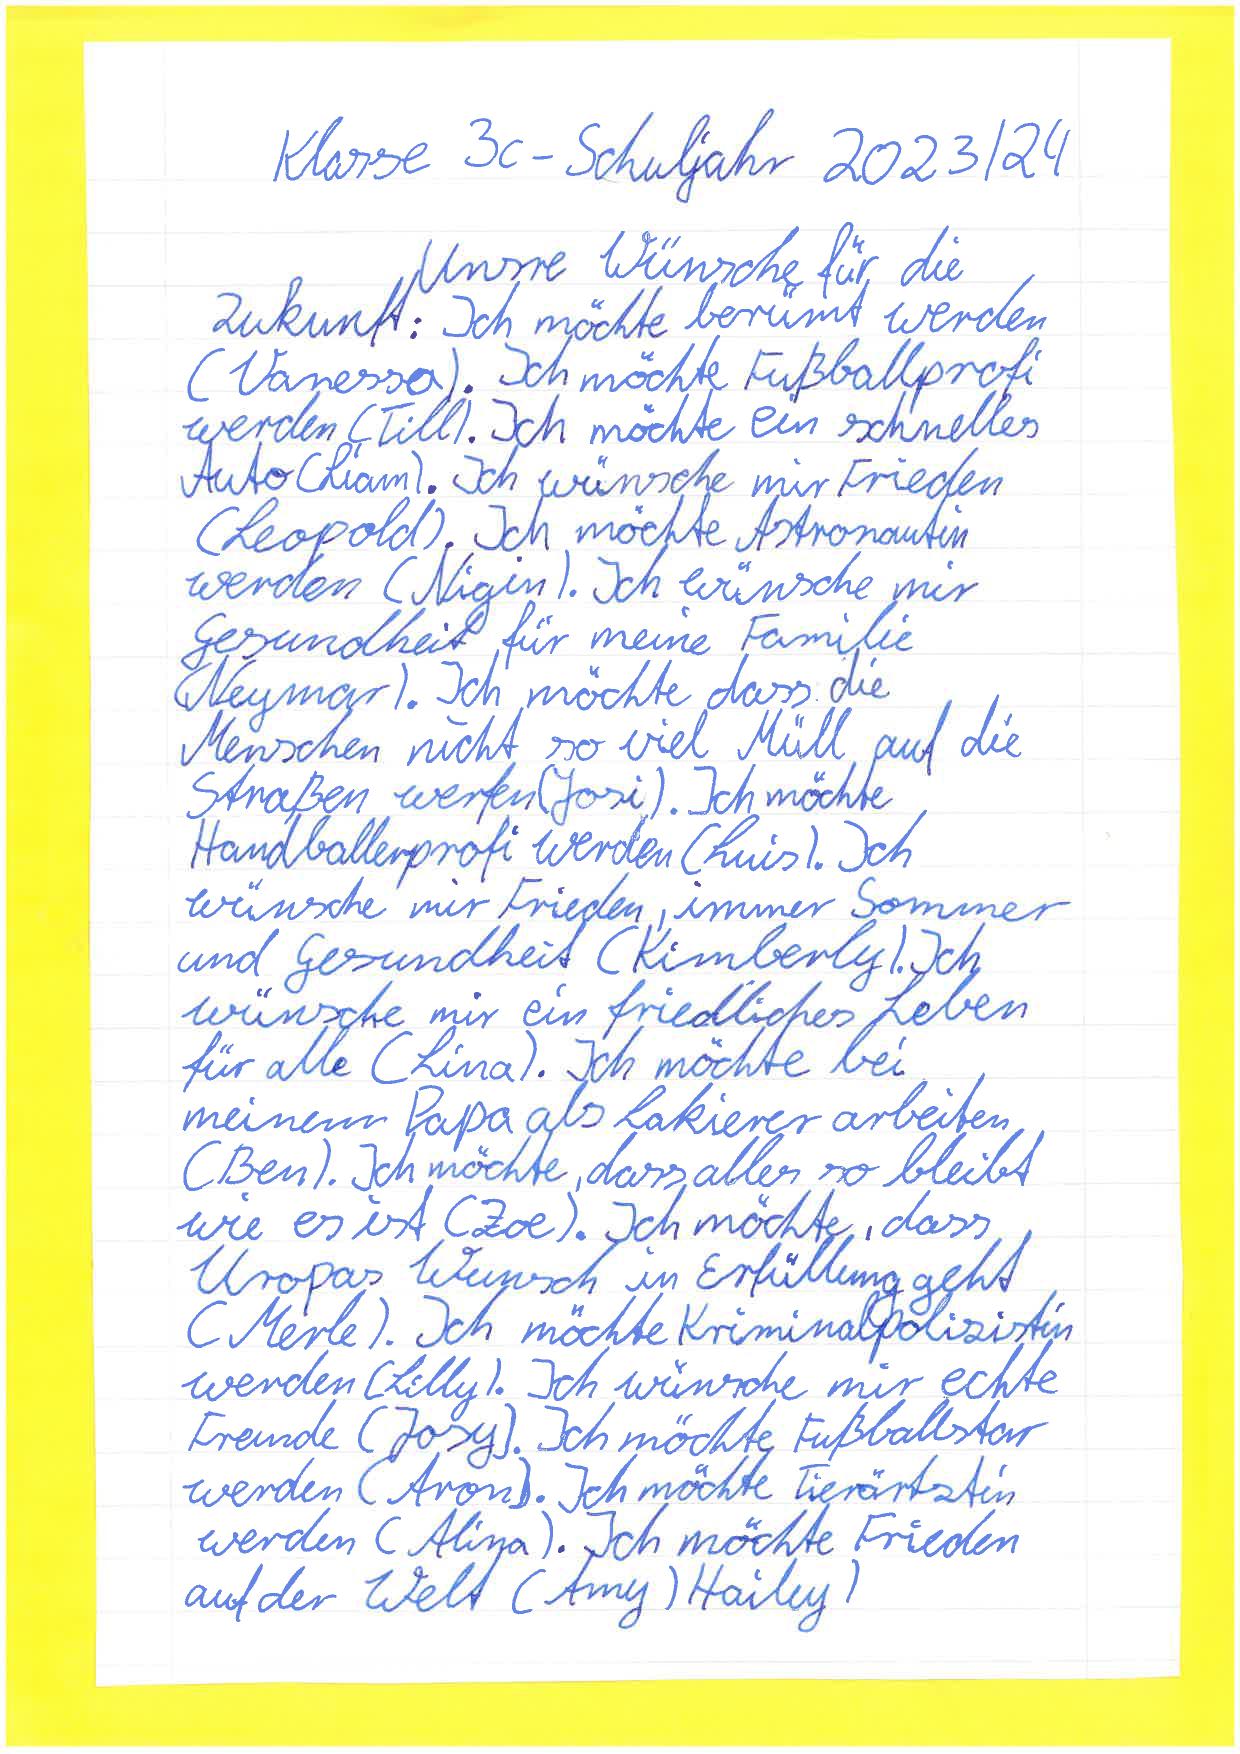 Klasse 3c - Schuljahr 2023/24
Unsre Wünsche für die
Zukunft: Ich möchte berümt werden
(Vanessa). Ich möchte Fußballprofi
werden (Till). Ich möchte ein schnelles
Auto (Liam). Ich wünsche mir Frieden
(Leopold). Ich möchte Astronautin
werden (Nigin). Ich wünsche mir
Gesundheit für meine Familie
(Neymar). Ich möchte dass die
Menschen nicht so viel Müll auf die
Straßen werfen (Josi). Ich möchte
Handballerprofi werden (Luis). Ich
wünsche mir Frieden, immer Sommer
und Gesundheit (Kimberly). Ich
wünsche mir ein friedliches Leben
für alle (Lina). Ich möchte bei
meinem Papa als Lakierer arbeiten
(Ben). Ich möchte, dass alles so bleibt
wie es ist (Zoe). Ich möchte, dass
Uropas Wunsch in Erfüllung geht
(Merle). Ich möchte Kriminalpolizistin
werden (Lilly). Ich wünsche mir echte
Freunde (Josy). Ich möchte Fußballstar
werden (Aron). Ich möchte Tierärtztin
werden (Alina). Ich möchte Frieden
auf der Welt (Amy) Hailey)